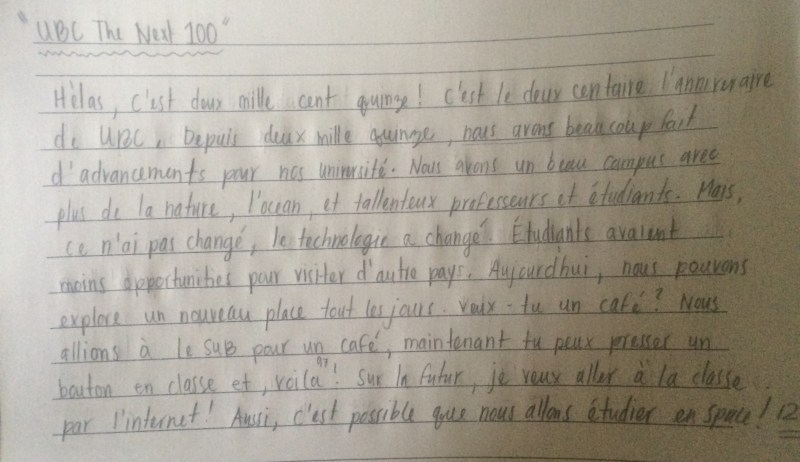 "UBC The Next 100"
Hèlas, c'est deux mille cent quinze! C'est le deux centaire l'anniveraire
de UBC. Depuis deux mille quinze, nous avons beaucoup fait
d'advancements pour nos université. Nous avons un beau campus avec
plus de la nature, l'ocean, et tallenteux professeurs et étudiants. Mais,
ce n'ai pas changé, le technologie a changé. Étudiants avaient
moins opportunities pour visiter d'autre pays. Aujourdhui, nous pouvons
explore un nouveau place tout les jours. Veux-tu un café? Nous
allions à le SUB pour un café, maintenant tu peux presser un
bouton en classe et, voila! Sur la futur, je veux aller à la classe
par l'internet! Aussi, c'est possible que nous allons étudier en space! 12